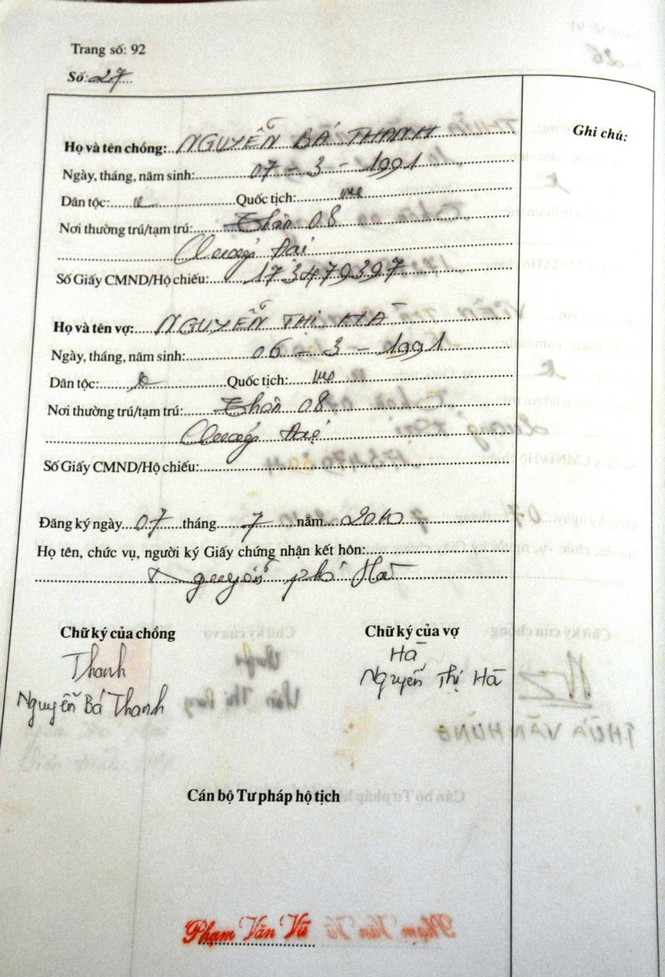 Trang số: 92
Số: 27
Ghi chú:
Họ và tên chồng: NGUYỄN BÁ THANH
Ngày, tháng, năm sinh: 07 - 3 - 1991
Dân tộc: K Quốc tịch: VN
Nơi thường trú/tạm trú: Thôn 08
Quảng Đại
Số Giấy CMND/Hộ chiếu: 173479397
Họ và tên vợ: NGUYỄN THỊ HÀ
Ngày, tháng, năm sinh: 06 - 3 - 1991
Dân tộc: K Quốc tịch: VN
Nơi thường trú/tạm trú: Thôn 08
Quảng Đại
Số Giấy CMND/Hộ chiếu:
Đăng ký ngày 07 tháng 7 năm 2010
Họ tên, chức vụ, người ký Giấy chứng nhận kết hôn:
Nguyễn Phú Hà
Chữ ký của chồng Chữ ký của vợ
Thanh Hà
Nguyễn Bá Thanh Nguyễn Thị Hà
Cán bộ Tư pháp hộ tịch
Phạm Văn Vũ